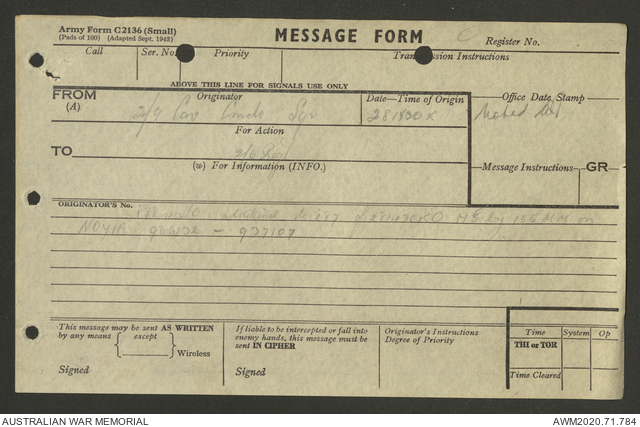 Army Form C2136 (Small)
(Pads of 100) (Adapted Sept. 1943)
MESSAGE FORM
Register No.
Call Ser. No. Priority Transmission Instructions
ABOVE THIS LINE FOR SIGNALS USE ONLY
FROM
(A)
Originator
Date—Time of Origin
Office Date Stamp
2/9 Cav Cmdo Sqn
281400K
Noted
For Action
TO
(w) For Information (INFO.)
Message Instructions
GR
ORIGINATOR'S No.
additional
by 155 MM on
937107
This message may be sent AS WRITTEN
by any means except
Wireless
Signed
If liable to be intercepted or fall into
enemy hands, this message must be
sent IN CIPHER
Signed
Originator's Instructions
Degree of Priority
Time System Op
THI or TOR
Time Cleared
AUSTRALIAN WAR MEMORIAL
AWM2020.71.784